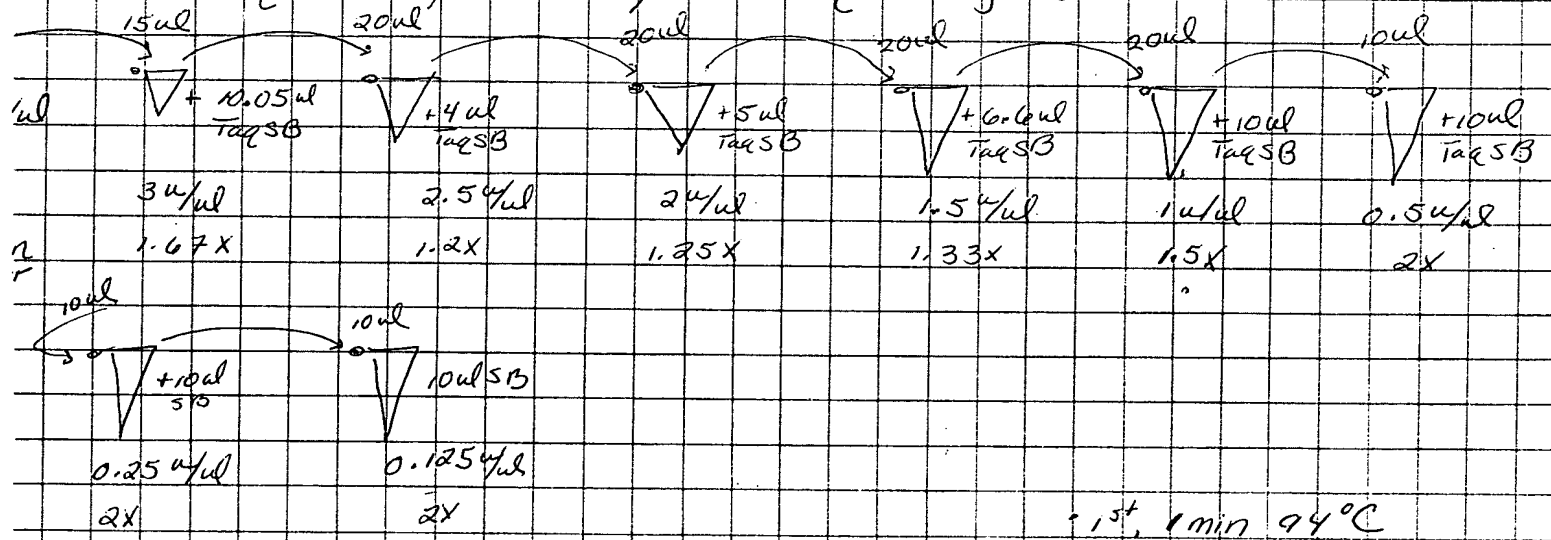 15ul 20ul 20ul 20ul 20ul 10ul
/ul + 10.05ul +4ul +5ul +6.6ul +10ul +10ul
TaqSB TaqSB TaqSB TaqSB TaqSB TaqSB
3u/ul 2.5u/ul 2u/ul 1.5u/ul 1u/ul 0.5u/ul
1.67X 1.2X 1.25X 1.33X 1.5X 2X
10ul 10ul
+10ul 10ulSB
SB
0.25u/ul 0.125u/ul
2X 2X
1st, 1min 94°C